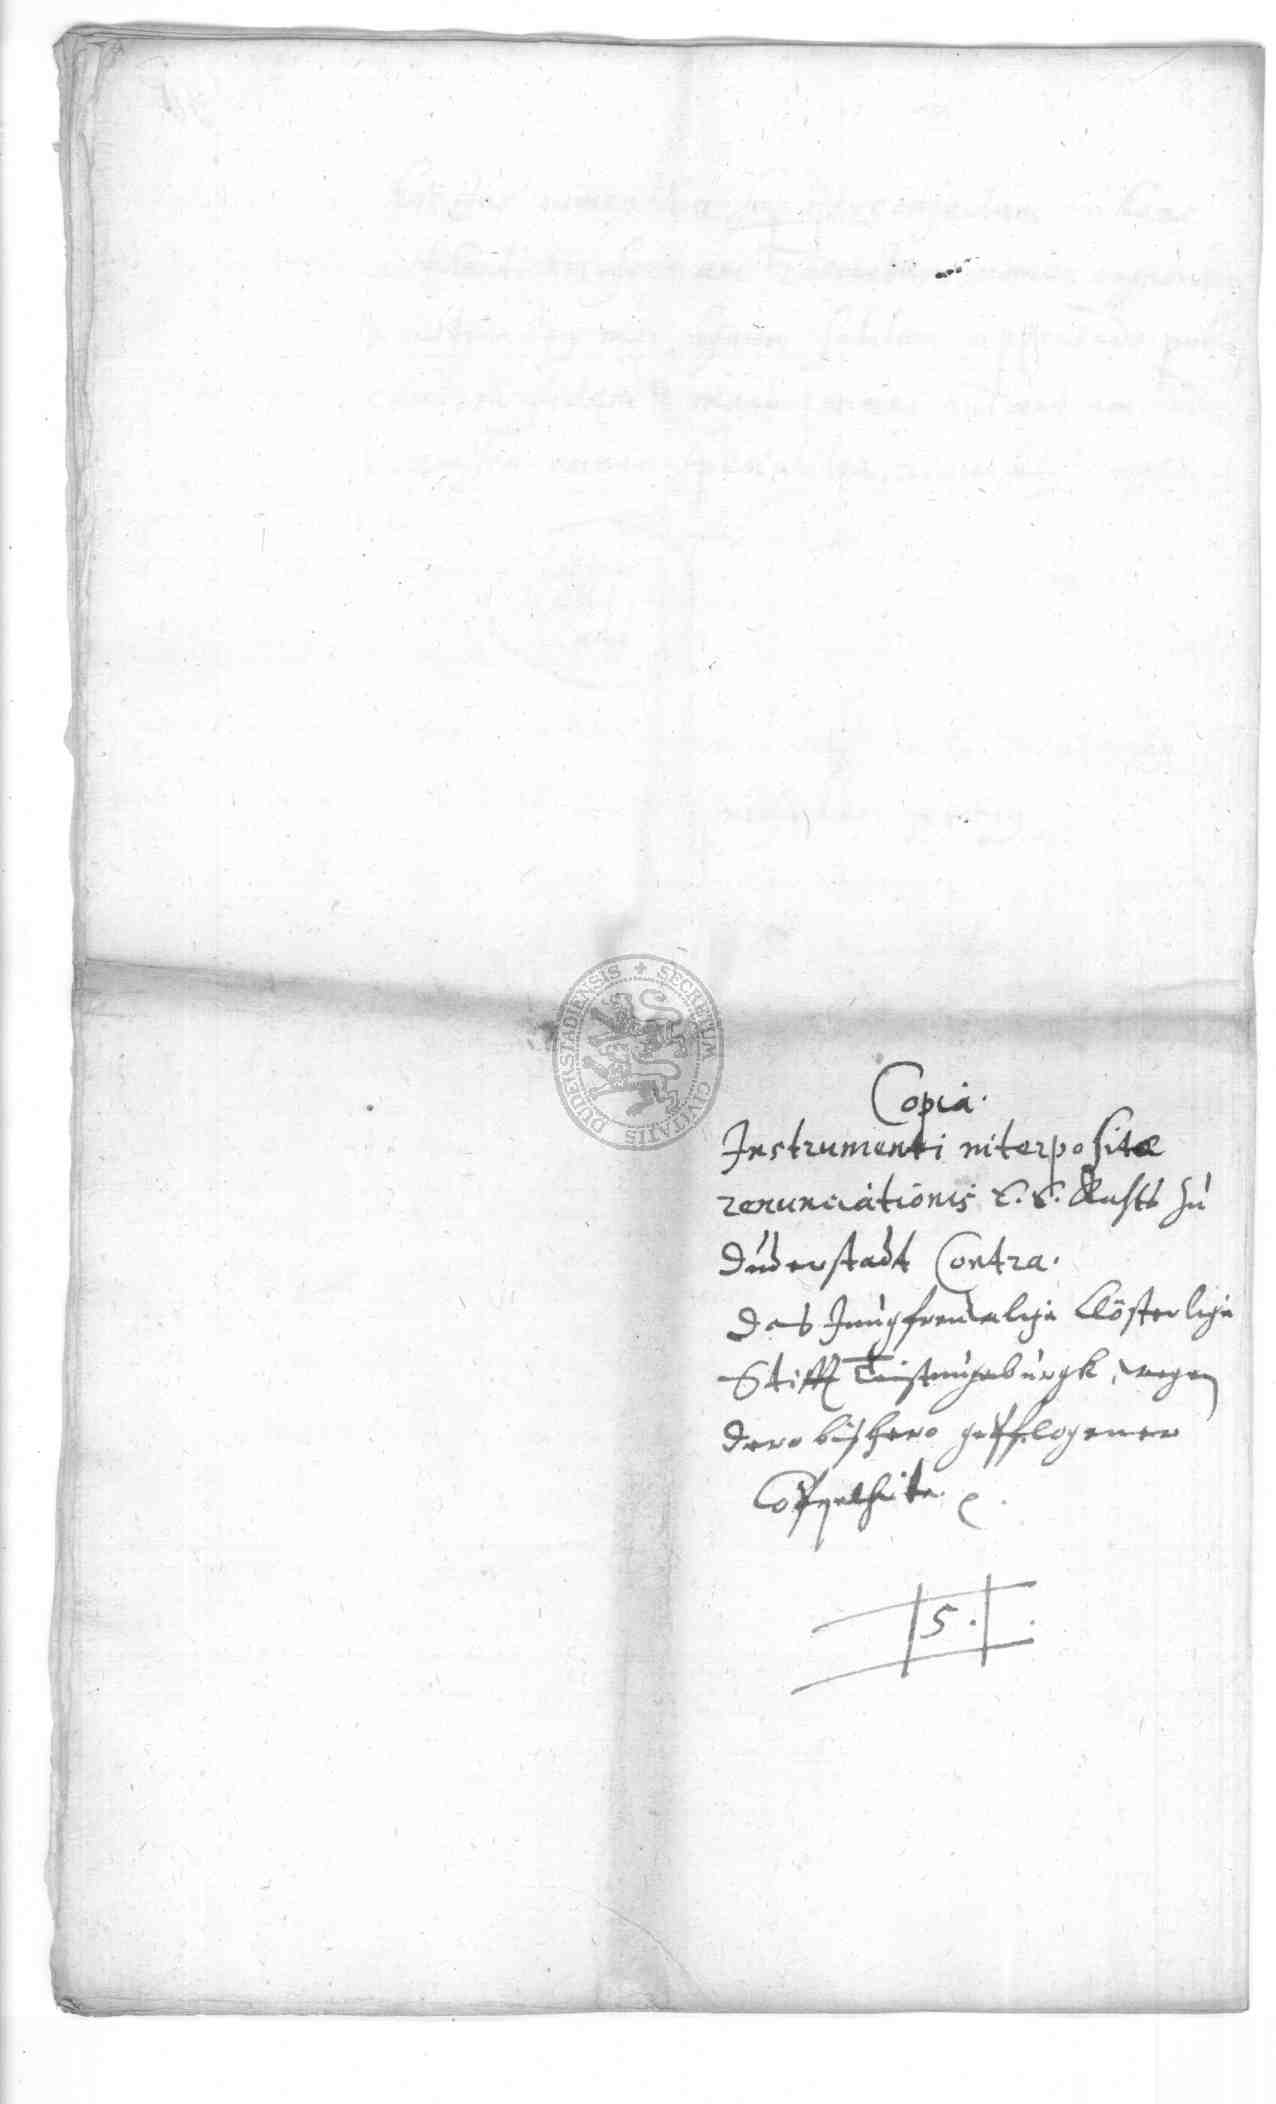 SECRETUM CIVITATIS DUDERSTADIENSIS
Copia.
Instrumenti interpositæ
renunciationis E. E. Rahts zu
Duderstadt Contra.
das Jungfrewliche Clösterliche
Stifft Teistungeburgk, wegen
dero bißhero gepflogener
5.